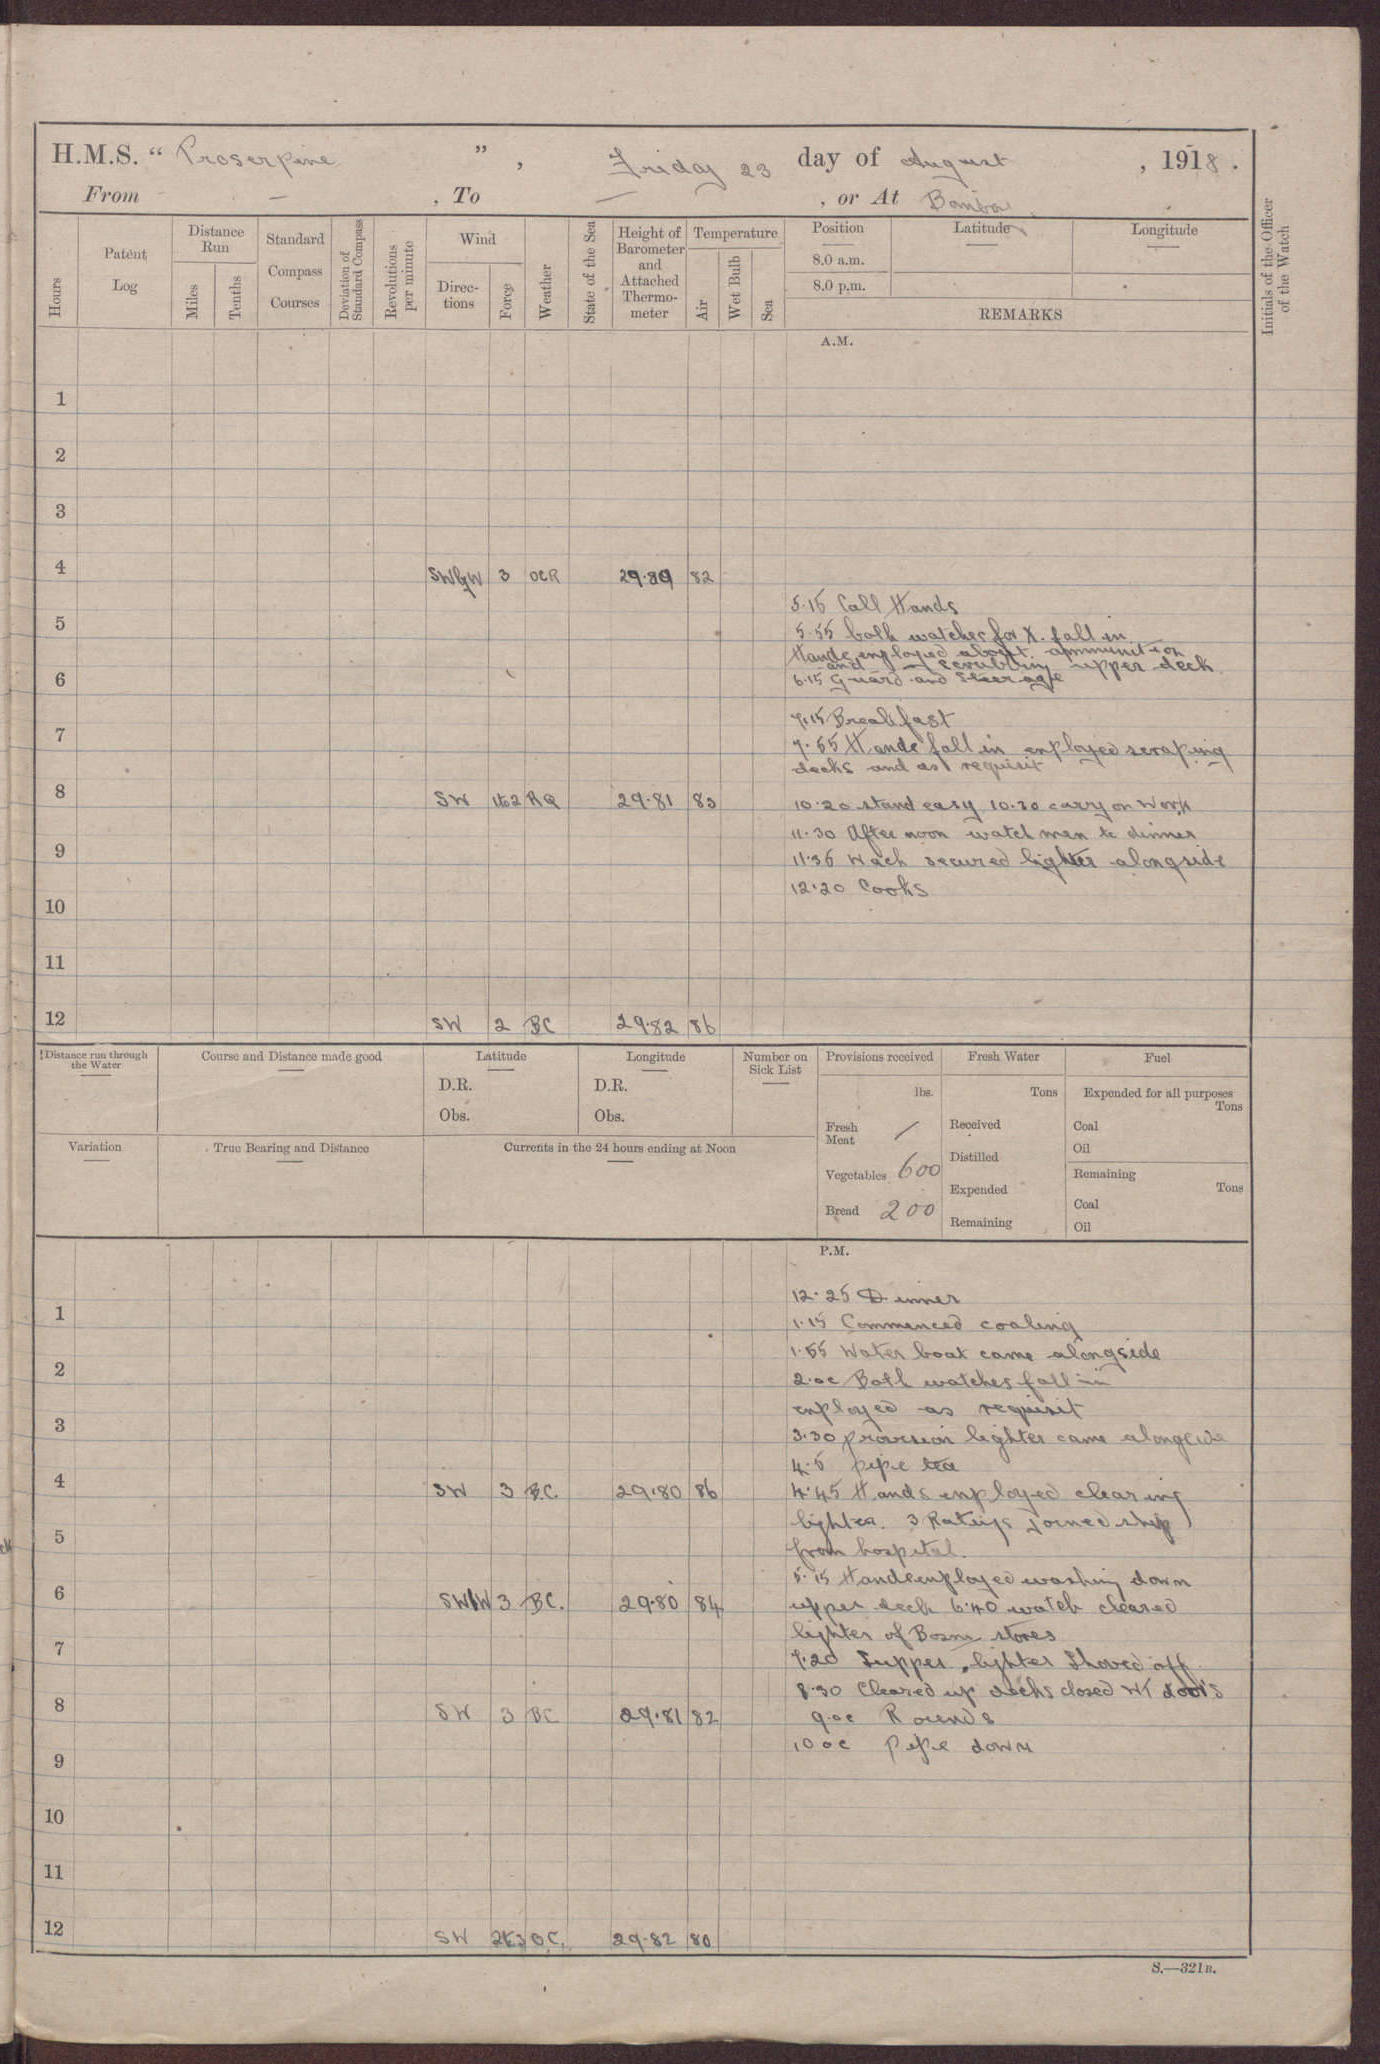 H.M.S. " Proserpine ", Friday 23 day of August, 1918.
From — , To — , or At Bombay
Hours
Patent Log
Distance Run
Miles
Tenths
Standard Compass Courses
Deviation of Standard Compass
Revolutions per minute
Wind
Direc-tions
Force
Weather
State of the Sea
Height of Barometer and Attached Thermo-meter
Temperature
Air
Wet Bulb
Sea
Position
Latitude
Longitude
8.0 a.m.
8.0 p.m.
REMARKS
Initials of the Officer of the Watch
A.M.
1
2
3
4 SWbyW 3 OCR 29.80 82
5.15 Call Hands
5 5.55 both watches for X. fall in
Hands employed about ammunition
and scrubbing upper deck
6 6.15 Guard and Steerage
7.15 Breakfast
7 7.55 Hands fall in employed scraping
decks and as requisit
8 SW 1to2 RQ 29.81 83 10.20 stand easy 10.30 carry on work
11.30 After noon watch men to dinner
9 11.36 Wach secured lighter alongside
12.20 Cooks
10
11
12 SW 2 BC 29.82 86
Distance run through the Water
Course and Distance made good
Latitude
D.R.
Obs.
Longitude
D.R.
Obs.
Number on Sick List
Provisions received
lbs.
Fresh Meat /
Vegetables 600
Bread 200
Fresh Water
Tons
Received
Distilled
Expended
Remaining
Fuel
Expended for all purposes
Tons
Coal
Oil
Remaining
Tons
Coal
Oil
Variation
True Bearing and Distance
Currents in the 24 hours ending at Noon
P.M.
12.25 Dinner
1 1.15 Commenced coaling
1.55 Water boat came alongside
2 2.0c Both watches fall in
employed as requisit
3 3.30 provision lighter came alongside
4.5 pipe tea
4 SW 3 BC. 29.80 86 4.45 Hands employed clearing
lighter. 3 Ratings joined ship
5 from hospital.
5.15 Hands employed washing down
6 SWbW 3 BC. 29.80 84 upper deck 6.40 watch cleared
lighter of Bosns stores
7 7.20 Supper, lighter Shoved off
8.30 Cleared up decks closed WT doors
8 SW 3 BC 29.81 82 9.0c Rounds
10 0c pipe down
9
10
11
12 SW 2to3 BC. 29.82 80
S.—321B.